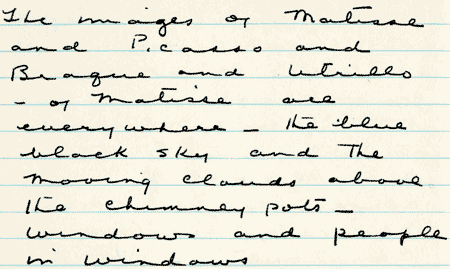 The images of Matisse
and Picasso and
Braque and Utrillo
- of Matisse are
everywhere - the blue
black sky and The
moving clouds above
the chimney pots -
windows and people
in windows